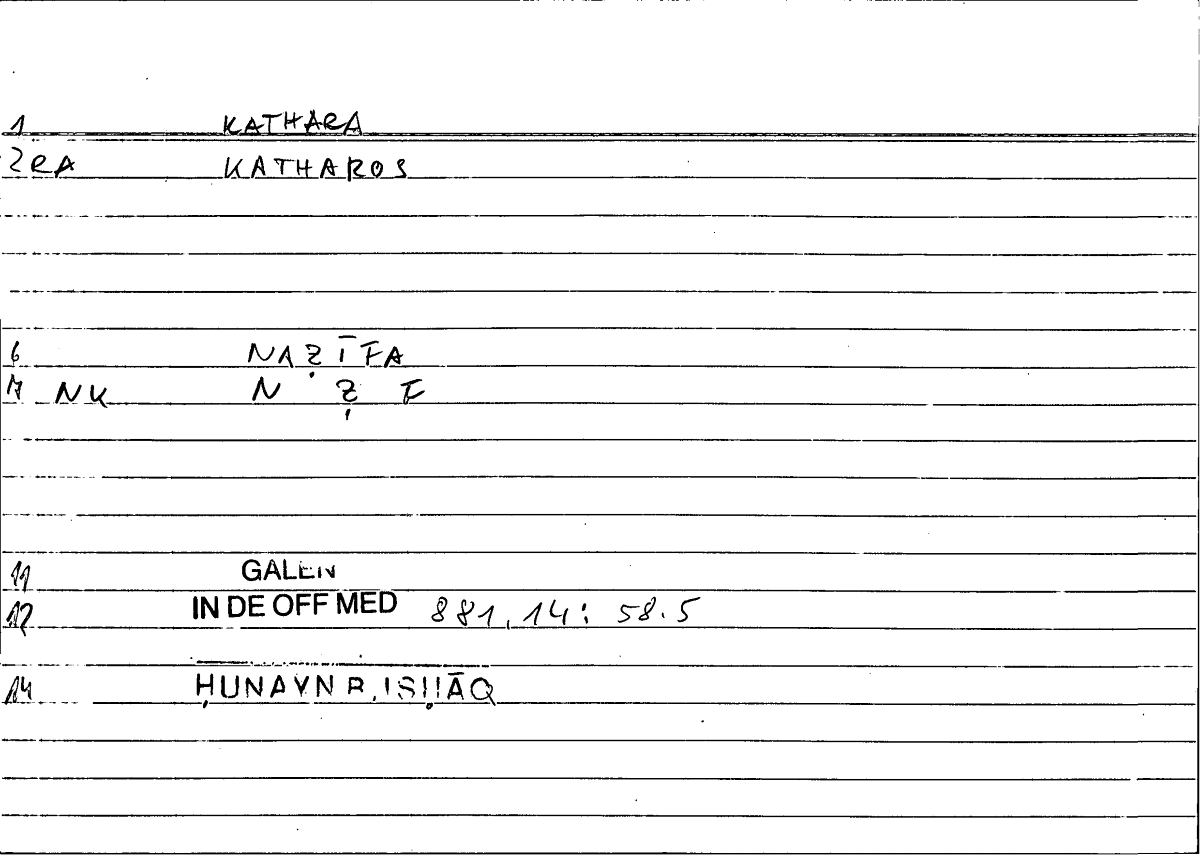 1 KATHARA
2RA KATHAROS
6 NAẒĪFA
7 NK N Ẓ F
11 GALEN
12 IN DE OFF MED 881,14: 58.5
14 ḤUNAYN B. ISḤĀQ